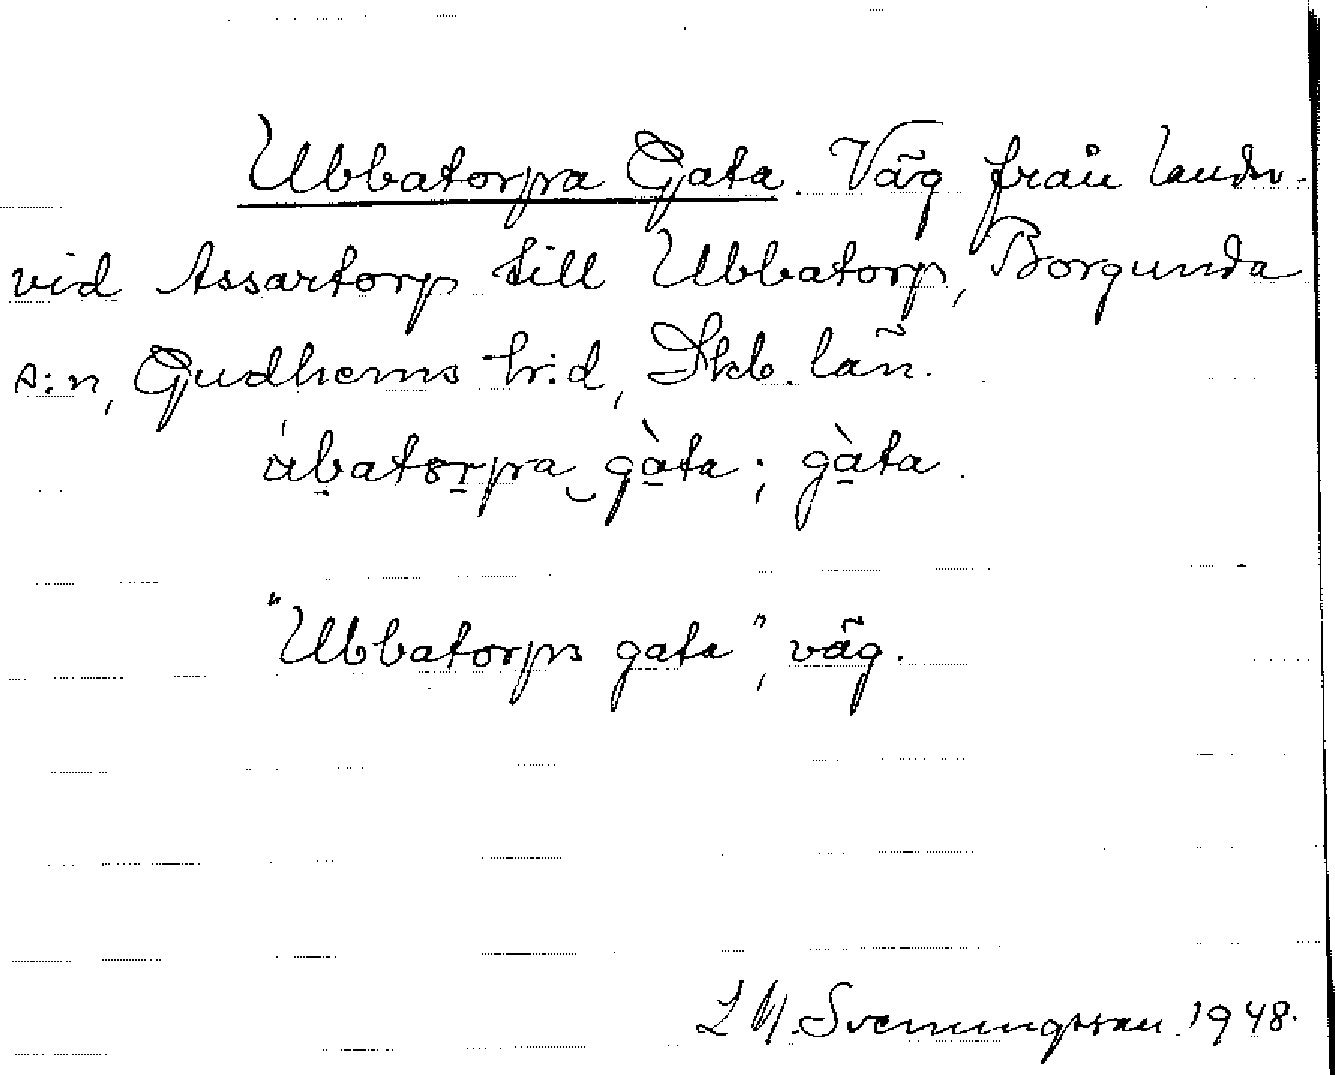 Ubbatorpa Gata. Väg från landsv.
vid Assartorp till Ubbatorp, Borgunda
s:n, Gudhems h:d, Skb. län.
ábatorpa gàta; gàta.
"Ubbatorps gata", väg.
L M. Svenungsson. 1948.